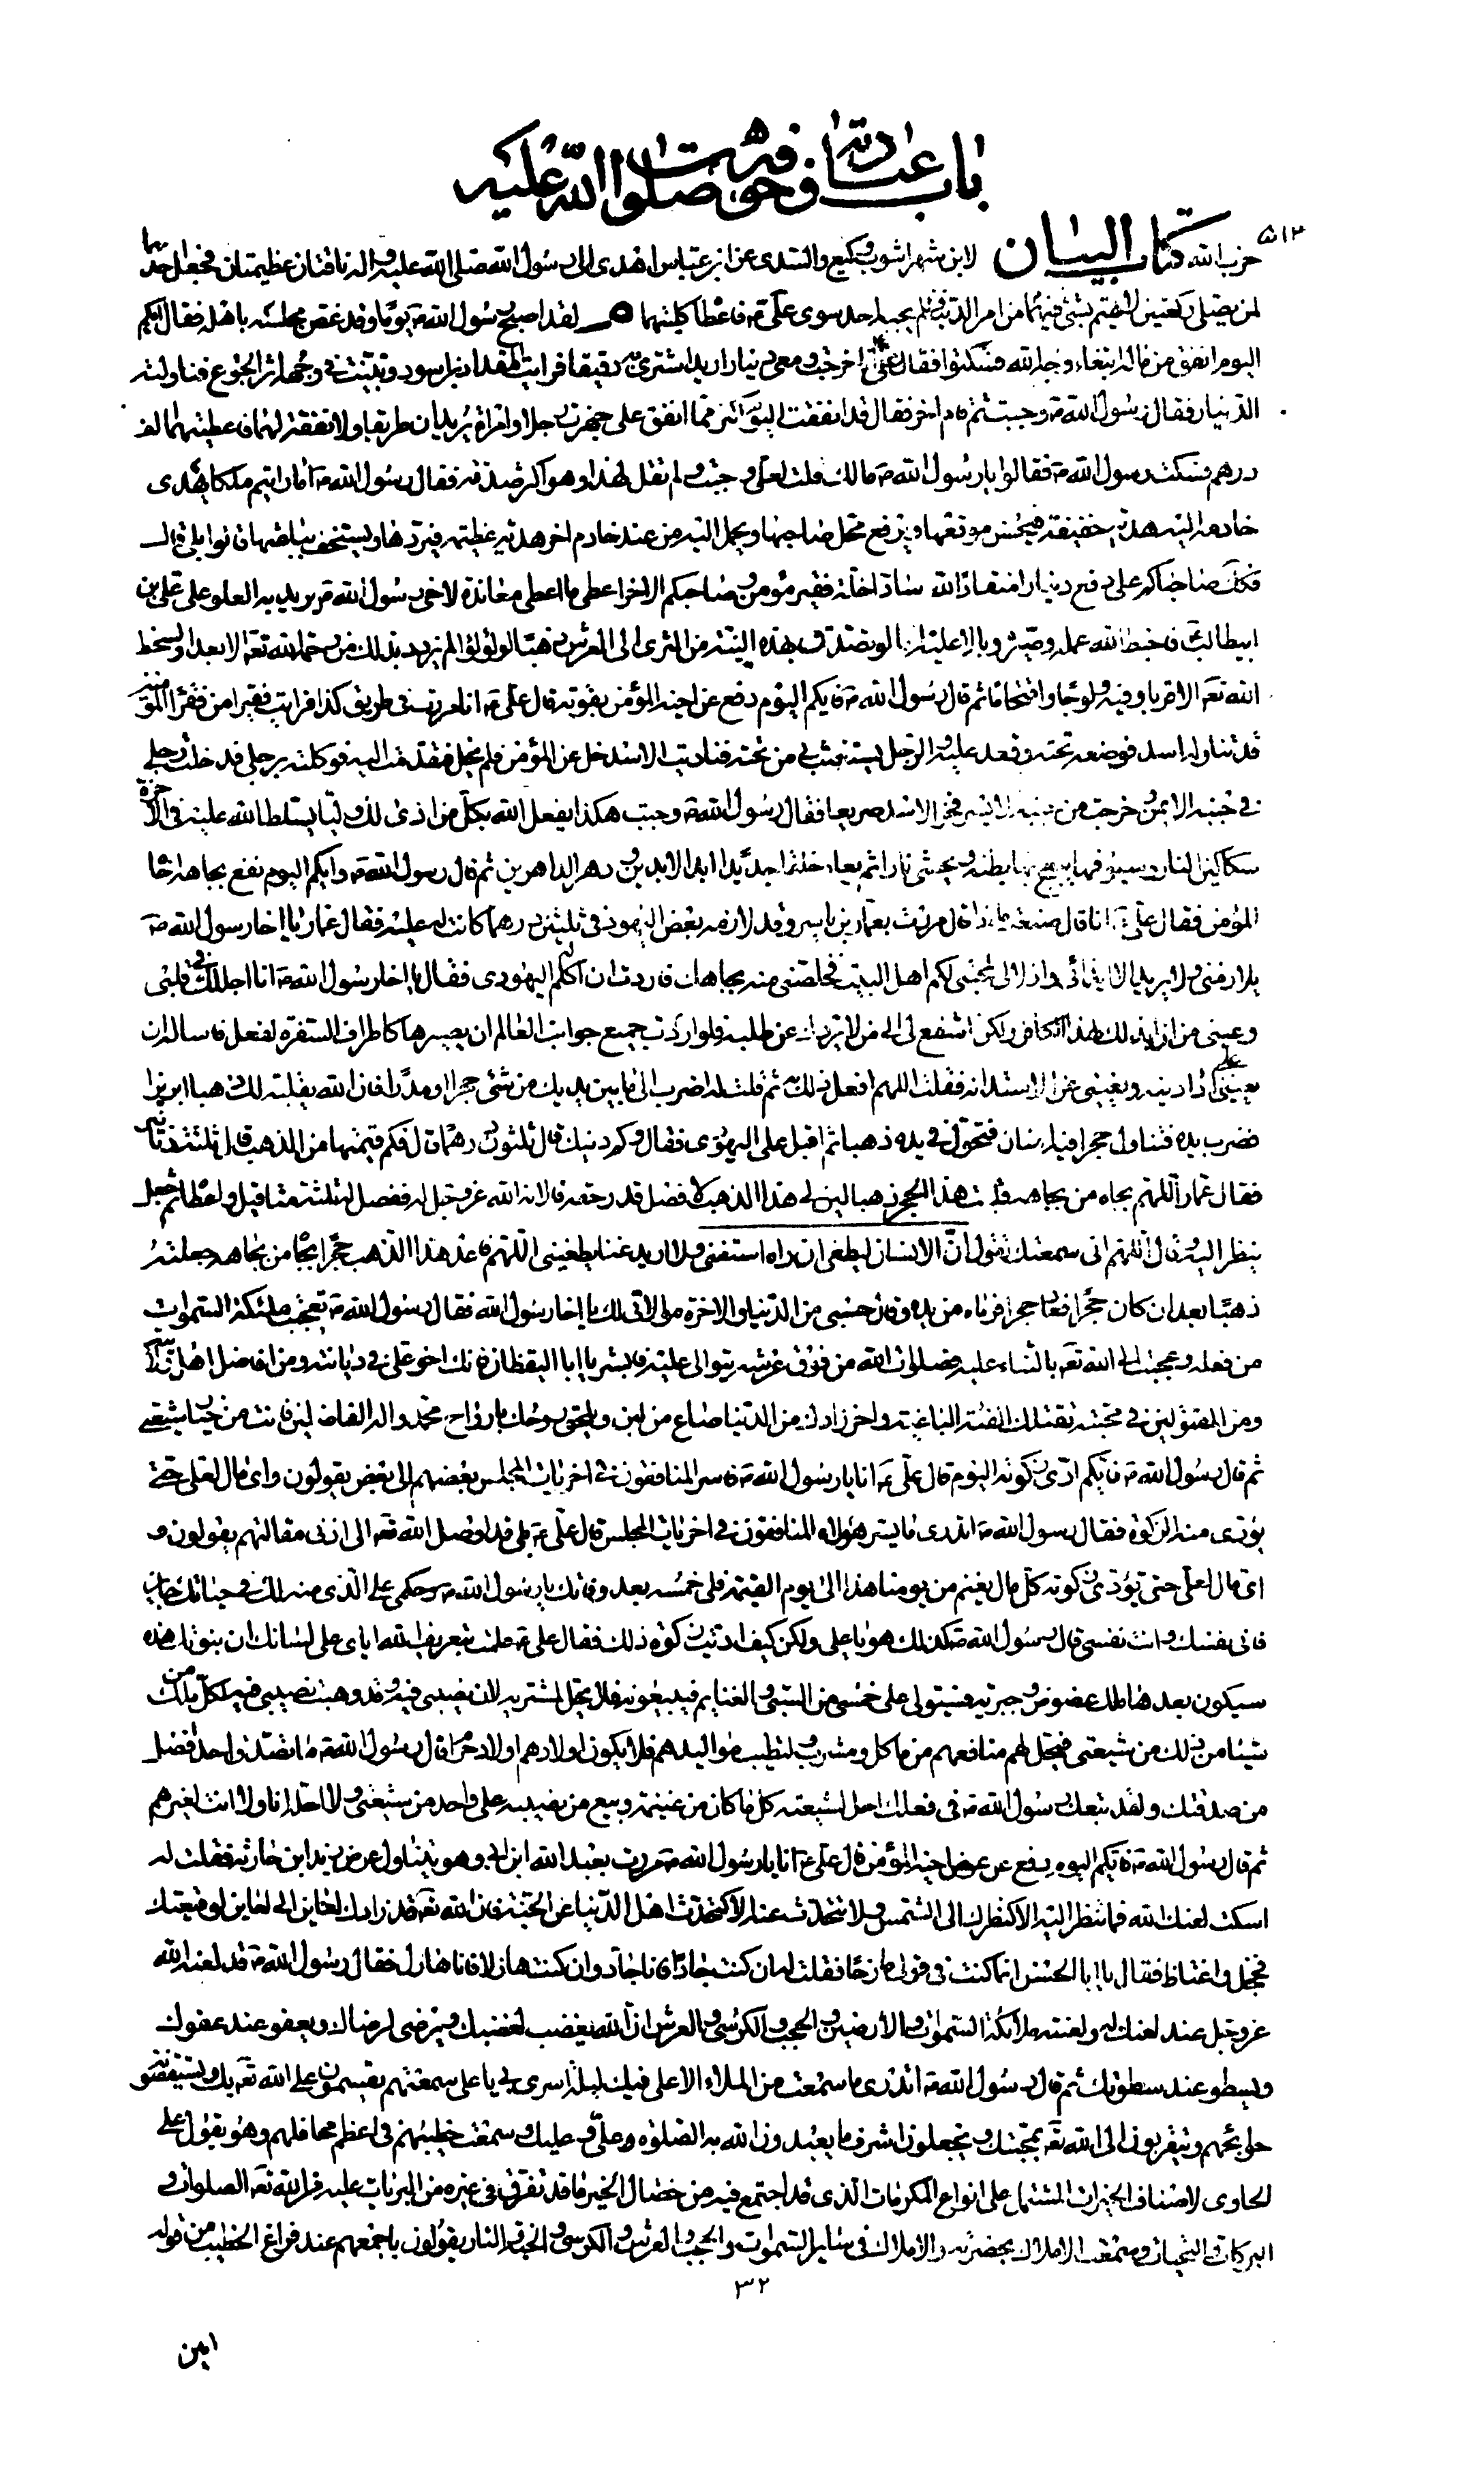 باب عبادته وخوفه صلوات الله عليه
حزب الله كتاب البيان لابن شهراشوب وكيع والسدى عن ابن عباس اهدى الى رسول الله صلى الله عليه واله ناقتان عظيمتان فجعل احديهما
لمن يصلى ركعتين لا يهتم بشئ فيهما من امر الدنيا فلم يجبه احد سوى على ع فاعطاه كلتيهما لقد اصبح رسول الله ص يوما وقد غص مجلسه باهله فقال ايكم
اليوم انفق من ماله ابتغاء وجه الله فسكتوا فقال على انا خرجت ومعى دينار اريد اشترى به دقيقا فرايت المقداد بن اسود وتبينت فى وجهه اثر الجوع فناولته
الدينار فقال رسول الله ص وجبت ثم قام اخر فقال قد انفقت اليوم اكثر مما انفق على جهزت رجلا وامراة يريدان طريقا ولا نفقة لهما فاعطيتهما الف
درهم فسكت رسول الله ص فقالوا يا رسول الله ص مالك قلت لعلى وجبت ولم تقل لهذا وهو اكثر صدقة فقال رسول الله ص اما رايتم ملكا يهدى
خادمه اليه هدية خفيفة فيحسن موقعها ويرفع محل صاحبها ويحمل اليه من عند خادم اخر هدية عظيمة فيردها ويستخف بباعثها قالوا بلى قال
فكذلك صاحبكم على دفع دينارا منقادا لله سادا خلة فقير مؤمن وصاحبكم الاخر اعطى ما اعطى معاندة لاخى رسول الله ص يريد به العلو على على بن
ابيطالب ع فاحبط الله عمله وصيره وبالا عليه اما لو تصدق بهذه النية من الثرى الى العرش ذهبا ولؤلؤا لم يزدد بذلك من رحمة الله تعه الا بعدا ولسخط
الله تعه الا قربا وفيه ولوجا واقتحاما ثم قال رسول الله ص فايكم اليوم دفع عن اخيه المؤمن بقوته قال على ع انا مررت فى طريق كذا فرايت فقيرا من فقراء المؤمنين
قد تناوله اسد فوضعه تحته وقعد عليه والرجل يستغيث بى من تحته فناديت الاسد خل عن المؤمن فلم يخل فتقدمت اليه فوكلته برجلى فدخلت رجلى
فى جنبه الايمن وخرجت من جنبه الايسر فخر الاسد صريعا فقال رسول الله ص وجبت هكذا يفعل الله بكل من اذى لك وليا يسلط الله عليه فى الاخرة
سكاكين النار وسيوفها يبعج بها بطنه ويحشى نارا ثم يعاد خلقا جديدا ابد الابدين ودهر الداهرين ثم قال رسول الله ص وايكم اليوم نفع بجاهه اخاه
المؤمن فقال على ع انا قال صنعت ماذا قال مررت بعمار بن ياسر وقد لازمه بعض اليهود فى ثلثين درهما كانت له عليه فقال عمار يا اخا رسول الله ص
يلازمنى ولا يريد الا ايذائى واذلالى لمحبتى لكم اهل البيت فخلصنى منه بجاهك فاردت ان اكلم له اليهودى فقال يا اخا رسول الله ص انا اجلك فى قلبى
وعينى من ان ابذلك لهذا الكافر ولكن اشفع لى الى من لا يردك عن طلبه فلو اردت جميع جوانب العالم ان يصيرها كاطراف السفرة لفعل فاساله ان
يعيننى على اداء دينه ويغنينى عن الاستدانة فقلت اللهم افعل ذلك به ثم قلت له اضرب الى ما بين يديك من شئ حجرا او مدرا فان الله يقلبه لك ذهبا ابريزا
فضرب يده فتناول حجرا فيه امنان فتحول فى يده ذهبا ثم اقبل على اليهودى فقال وكم دينك قال ثلثون درهما قال فكم قيمتها من الذهب قال ثلثة دنانير
فقال عمار اللهم بجاه من بجاهه قلبت هذا الحجر ذهبا لين لى هذا الذهب لافصل قدر حقه فالانه الله عز وجل له ففصل له ثلثة مثاقيل واعطاه ثم جعل
ينظر اليه وقال اللهم انى سمعتك تقول ان الانسان ليطغى ان راه استغنى ولا اريد غنا يطغينى اللهم فاعد هذا الذهب حجرا بجاه من بجاهه جعلته
ذهبا بعد ان كان حجرا فعاد حجرا فرماه من يده وقال حسبى من الدنيا والاخرة موالاتى لك يا اخا رسول الله فقال رسول الله ص تعجبت ملئكة السموات
من فعله وعجت الى الله تعه بالثناء عليه فصلوات الله من فوق عرشه يتوالى عليه فابشر يا ابا اليقظان فانك اخو على فى ديانته ومن افاضل اهل ولايته
ومن المقتولين فى محبته تقتلك الفئة الباغية واخر زادك من الدنيا صاع من لبن ويلحق روحك بارواح محمد واله الفاضلين فانت من خيار شيعتى
ثم قال رسول الله ص فايكم ادى زكوته اليوم قال على ع انا يا رسول الله ص فاسر المنافقون فى اخريات المجلس بعضهم الى بعض يقولون واى مال لعلى حتى
يؤدى منه الزكوة فقال رسول الله ص اتدرى ما يسر هؤلاء المنافقون فى اخريات المجلس قال على ع بلى قد اوصل الله تعه الى اذنى مقالتهم يقولون و
اى مال لعلى حتى يؤدى زكوته كل مال يغنم من يومنا هذا الى يوم القيمة فلى خمسه بعد وفاتك يا رسول الله ص وحكمى على الذى منه لك فى حياتك جايز
فانى نفسك وانت نفسى قال رسول الله ص كذلك هو يا على ولكن كيف اديت زكوة ذلك فقال على ع علمت بتعريف الله اياى على لسانك ان نبوتك هذه
سيكون بعدها ملك عضوض وجبرية فيستولى على خمسى من السبى والغنايم فيبيعونه فلا يحل لمشتريه لان نصيبى فيه وقد وهبت نصيبى فيه لكل من ملك
شيئا من ذلك من شيعتى فيحل لهم منافعهم من ماكل ومشرب ولتطيب مواليدهم فلا يكون اولادهم اولاد حرام قال رسول الله ص ما تصدق واحد افضل
من صدقتك ولقد تبعك رسول الله ص فى فعلك احل لشيعته كل ما كان من غنيمة وبيع من نصيبه على واحد من شيعتى ولا احله انا ولا انت لغيرهم
ثم قال رسول الله ص فايكم اليوم دفع عن عرض اخيه المؤمن قال على ع انا يا رسول الله ص مررت بعبد الله ابن ابى وهو يتناول عرض زيد ابن حارثة فقلت له
اسكت لعنك الله فما تنظر اليه الا كنظرك الى الشمس ولا تتحدث عنه الا كتحدث اهل الدنيا عن الجنة فان الله تعه قد زادك لعاين الى لعاين لوقيعتك
فخجل واغتاظ فقال يا ابا الحسن انما كنت فى قولى مازحا فقلت له ان كنت جادا فانا جاد وان كنت هازلا فانا هازل فقال رسول الله ص قد لعنه الله
عز وجل عند لعنك له ولعنته ملائكة السموات والارضين والحجب والكرسى والعرش ان الله يغضب لغضبك ويرضى لرضاك ويعفو عند عفوك
ويسطو عند سطوتك ثم قال رسول الله ص اتدرى ما سمعت من الملاء الاعلى فيك ليلة اسرى بى يا على سمعتهم يقسمون على الله تعه بك ويستقضونه
حوايجهم ويتقربون الى الله تعه بمحبتك ويجعلون اشرف ما يعبدون الله به الصلوة على وعليك وسمعت خطيبهم فى اعظم محافلهم وهو يقول على
الحاوى لاصناف الخيرات المشتمل على انواع المكرمات الذى قد اجتمع فيه من خصال الخير ما قد تفرق فى غيره من البريات عليه من الله تعه الصلوات و
البركات والتحيات وسمعت الاملاك بحضرته والاملاك فى ساير السموات والحجب والعرش والكرسى والجنة والنار يقولون باجمعهم عند فراغ الخطيب من قوله
٣٢
امين